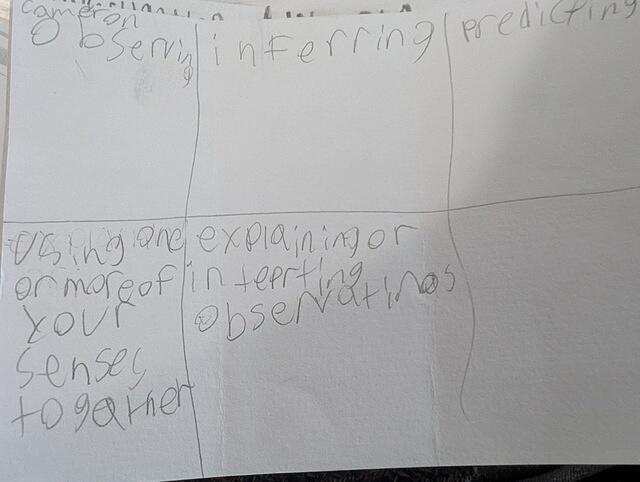 cameron
Observing inferring predicting
using one explaining or
or more of inteerting
your observatinos
senses
togather